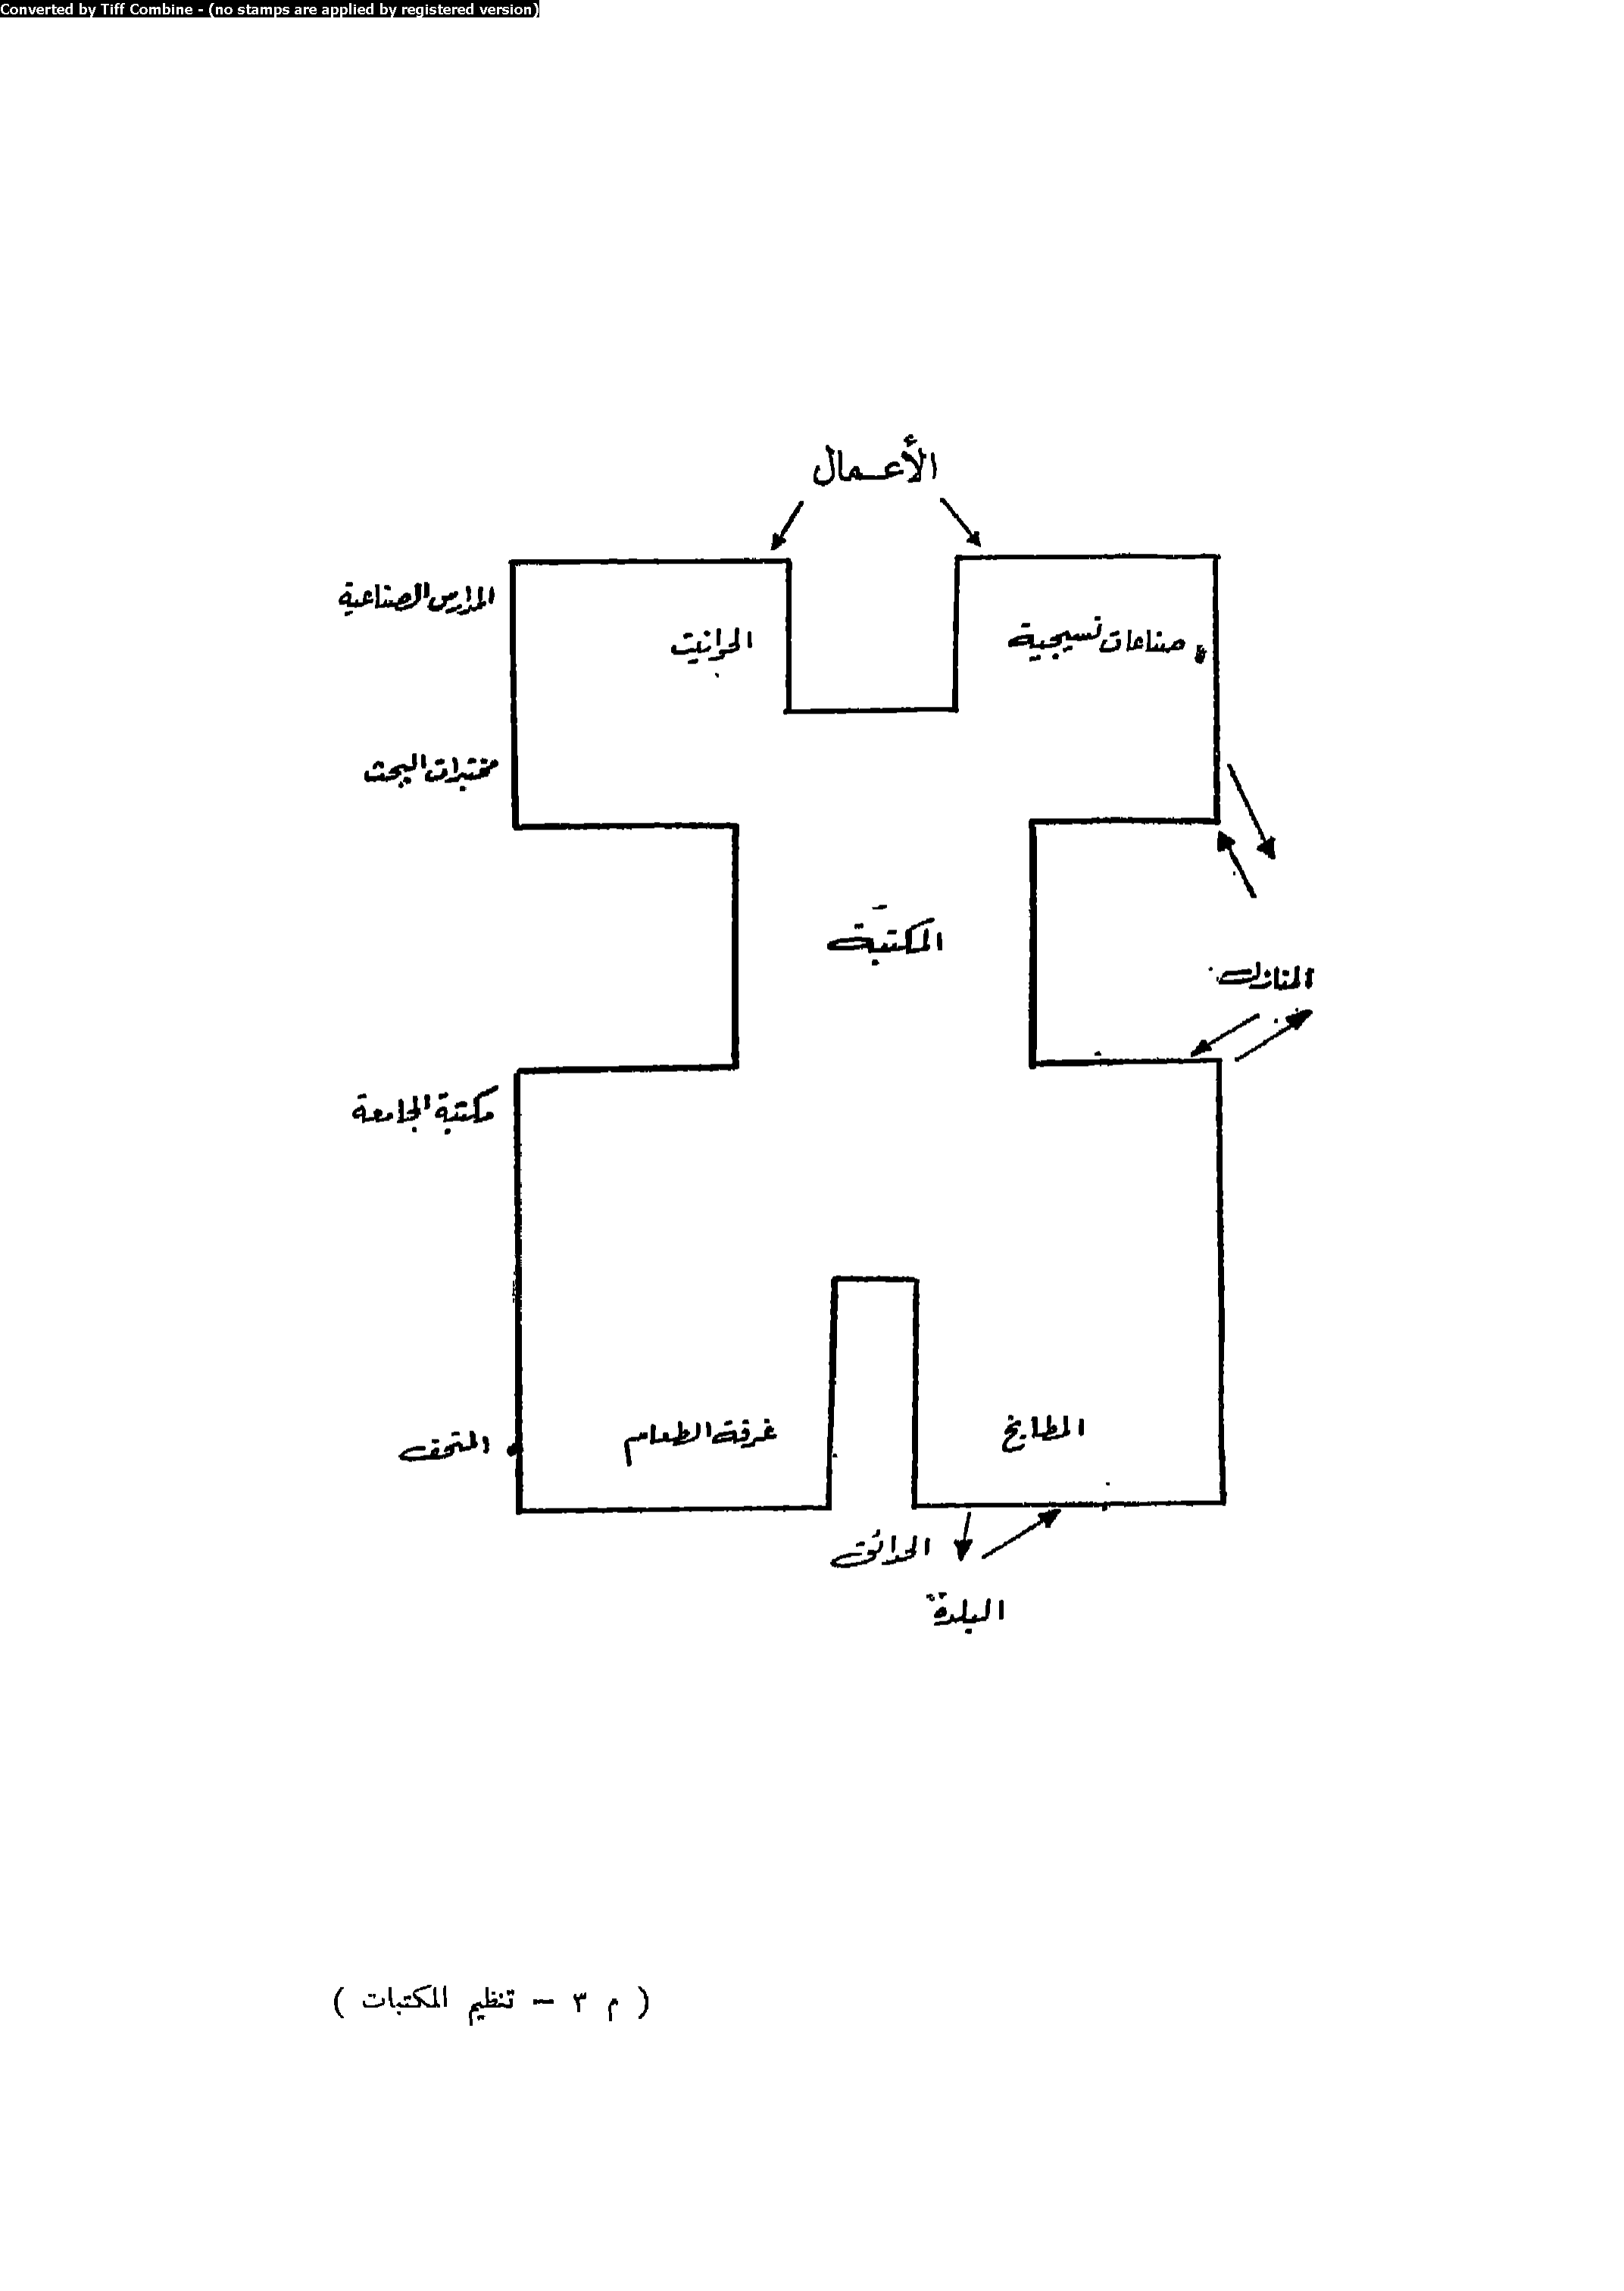 Converted by Tiff Combine - (no stamps are applied by registered version)
الأعمال
المدارس الصناعية
الحوانيت
صناعات نسيجية
مختبرات البحث
المكتبة
المنازل
مكتبة الجامعة
المطابخ
غرفة الطعام
المتحف
الحدائق
البلدة
( م ٣ – تنظيم المكتبات )